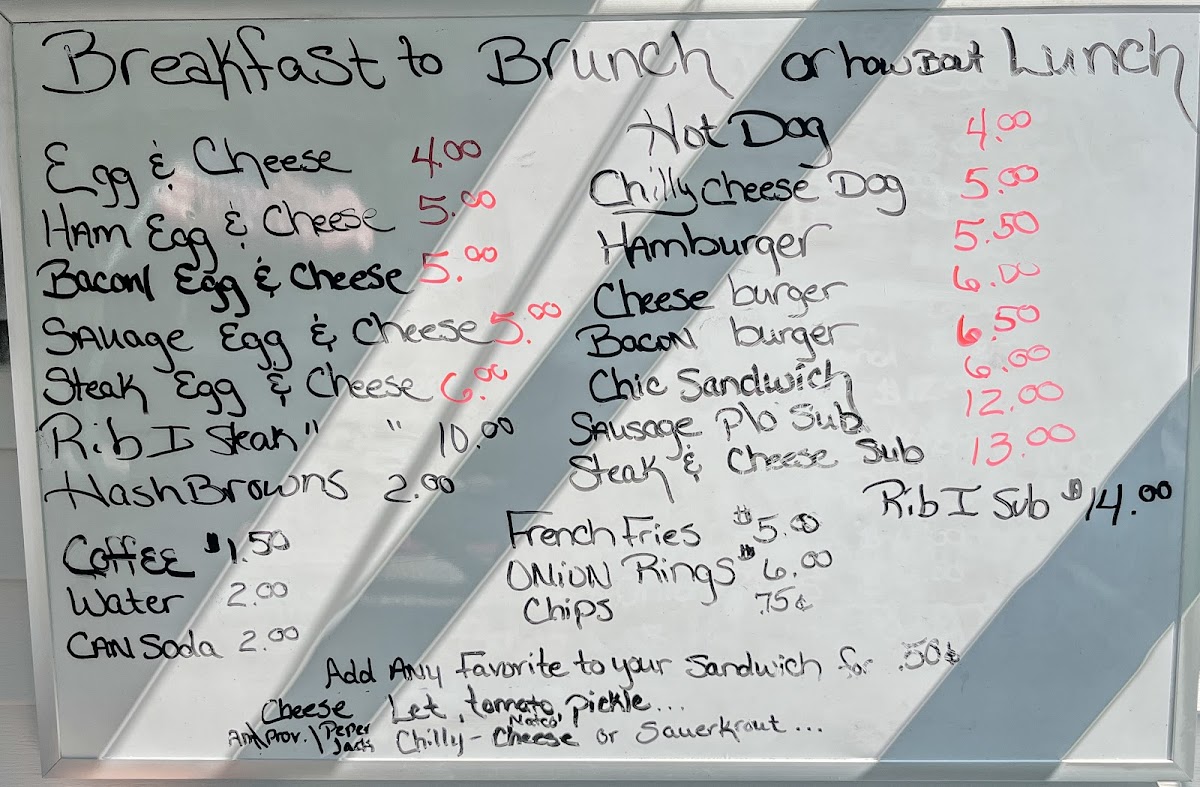 Breakfast to Brunch or how Bout Lunch
Egg & Cheese 4.00
HAM Egg & Cheese 5.00
Bacon Egg & Cheese 5.00
SAUage Egg & Cheese 5.00
Steak Egg & Cheese 6.00
Rib I Steak " " 10.00
Hash Browns 2.00
Coffee $1.50
Water 2.00
CAN Soda 2.00
Hot Dog 4.00
Chilly Cheese Dog 5.00
Hamburger 5.50
Cheese burger 6.00
Bacon burger 6.50
Chic Sandwich 6.00
Sausage P/O Sub 12.00
Steak & Cheese Sub 13.00
Rib I Sub $14.00
French Fries $5.00
Onion Rings $6.00
Chips .75¢
Add ANY Favorite to your Sandwich for .50¢
Cheese Let, tomato, pickle...
Am\Prov.\Peper Jack Chilly - Nacho Cheese or Sauerkraut...